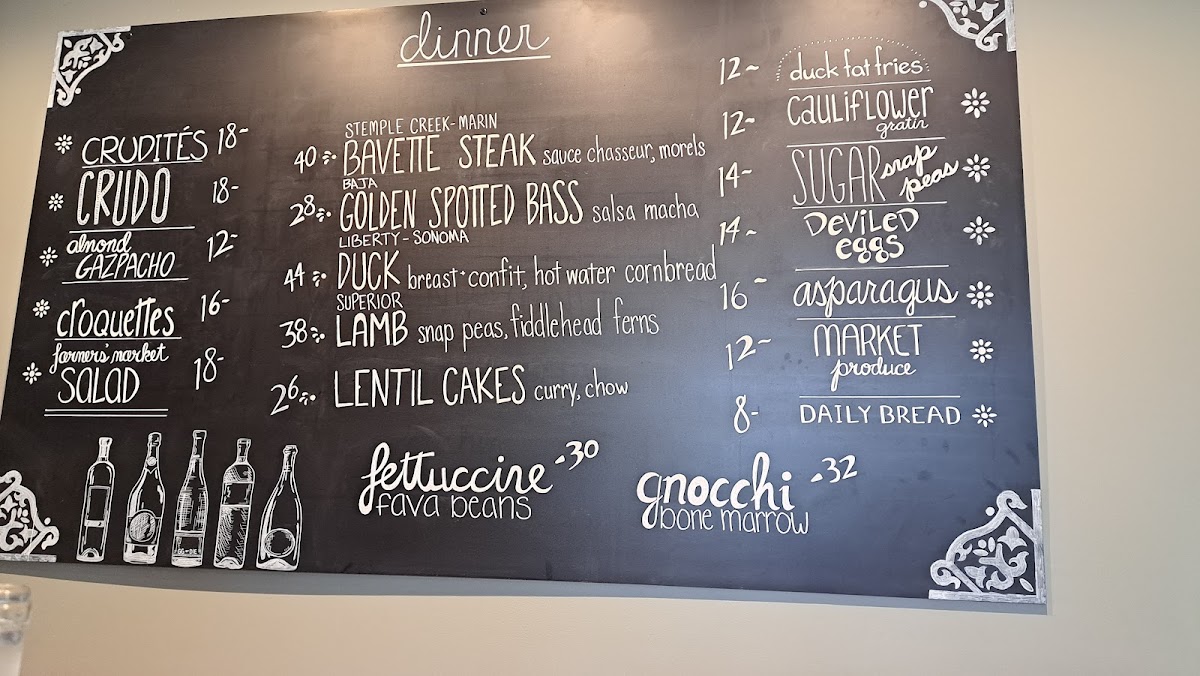 dinner
CRUDITÉS 18-
CRUDO 18-
almond
GAZPACHO 12-
croquettes 16-
farmers' market
SALAD 18-
STEMPLE CREEK-MARIN
40 BAVETTE STEAK sauce chasseur, morels
BAJA
28 GOLDEN SPOTTED BASS salsa macha
LIBERTY-SONOMA
44 DUCK breast+confit, hot water cornbread
SUPERIOR
38 LAMB snap peas, fiddlehead ferns
26 LENTIL CAKES curry, chow
fettuccine -30
fava beans
gnocchi -32
bone marrow
12~ duck fat fries
12~ CAULIFLOWER
gratin
14- SUGAR snap
peas
14~ DEVILED
eggs
16~ asparagus
12~ MARKET
produce
8- DAILY BREAD